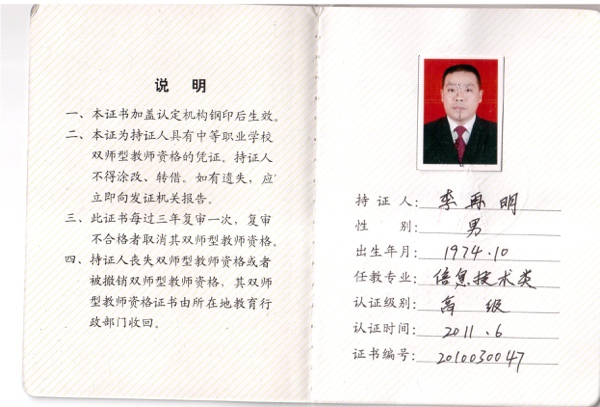 说 明
一、本证书加盖认定机构钢印后生效。
二、本证为持证人具有中等职业学校
双师型教师资格的凭证。持证人
不得涂改、转借。如有遗失，应
立即向发证机关报告。
三、此证书每过三年复审一次，复审
不合格者取消其双师型教师资格。
四、持证人丧失双师型教师资格或者
被撤销双师型教师资格，其双师
型教师资格证书由所在地教育行
政部门收回。
持 证 人：李再明
性 别：男
出生年月：1974.10
任教专业：信息技术类
认证级别：高 级
认证时间：2011.6
证书编号：2010030047